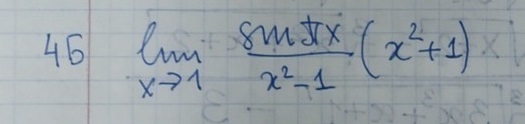 46 lim x→1 sin πx / x²-1 (x²+1)